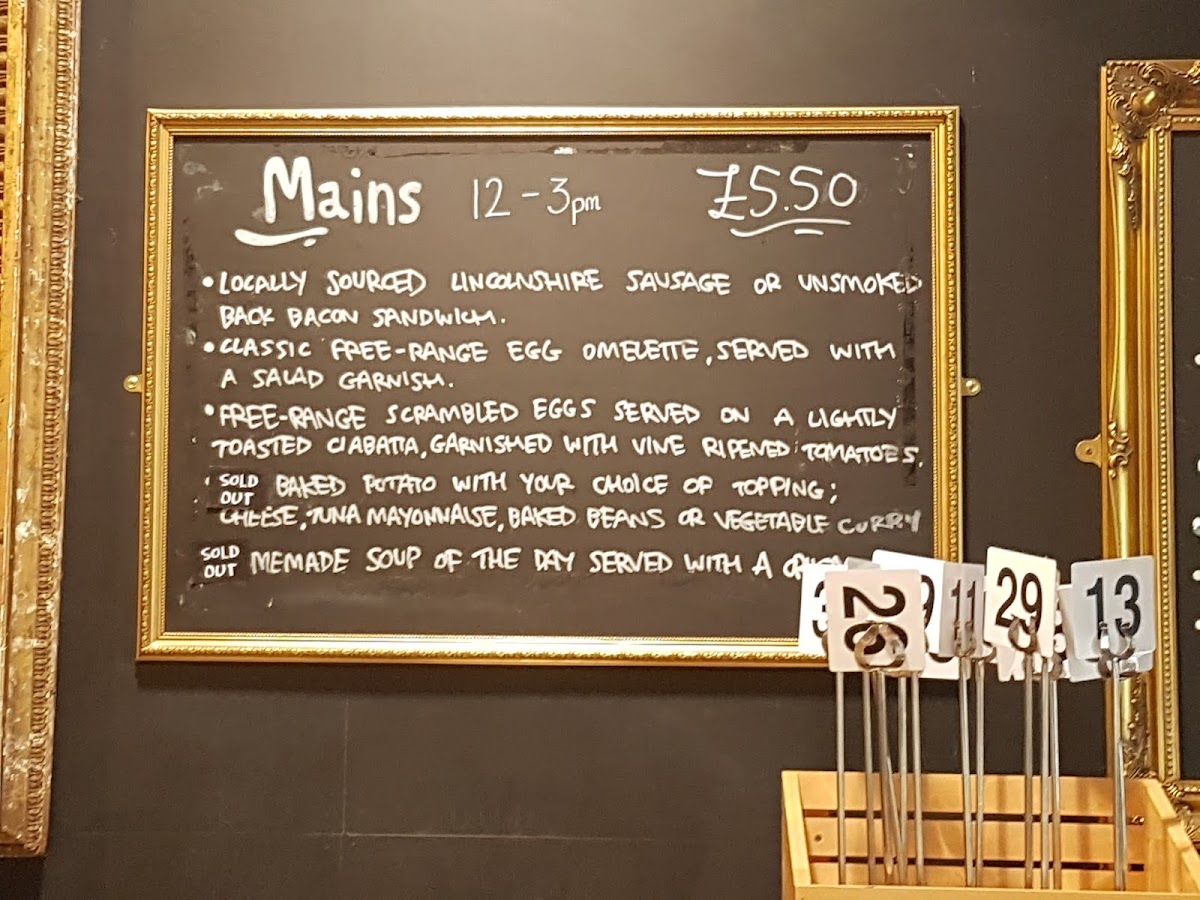 Mains 12-3pm £5.50
• LOCALLY SOURCED LINCOLNSHIRE SAUSAGE OR UNSMOKED
BACK BACON SANDWICH.
• CLASSIC FREE-RANGE EGG OMELETTE, SERVED WITH
A SALAD GARNISH.
• FREE-RANGE SCRAMBLED EGGS SERVED ON A LIGHTLY
TOASTED CIABATTA, GARNISHED WITH VINE RIPENED TOMATOES.
SOLD OUT BAKED POTATO WITH YOUR CHOICE OF TOPPING;
CHEESE, TUNA MAYONNAISE, BAKED BEANS OR VEGETABLE CURRY
SOLD OUT MEMADE SOUP OF THE DAY SERVED WITH A
26 11 29 13